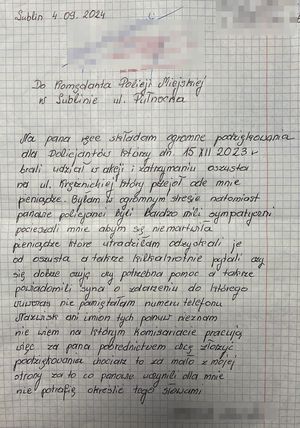 Lublin 4.09.2024
Do Komędanta Policji Miejskiej
w Lublinie ul. Północna
Na pana ręce składam ogromne podziękowania
dla Policjantów którzy dn. 15 XII 2023 r
brali udział w akcji i zatrzymaniu oszusta
na ul. Krężnickiej który przejął ode mnie
pieniądze. Byłam w ogromnym stresie natomiast
panowie policjanci byli bardzo mili sympatyczni
pocieszali mnie abym się niemartwiła
pieniądze które utraciłam odzyskali je
od oszusta a także kilkakrotnie pytali czy
się dobrze czuję czy potrzebna pomoc a także
powiadomili syna o zdarzeniu do którego
wówczas nie pamiętałam numeru telefonu
Nazwisk ani imion tych panów nieznam
nie wiem na którym komisariacie pracują
więc za pana pośrednictwem chcę złożyć
podziękowania chociaż to za mało z mojej
strony za to co panowie uczynili dla mnie
nie potrafię określić tego słowami